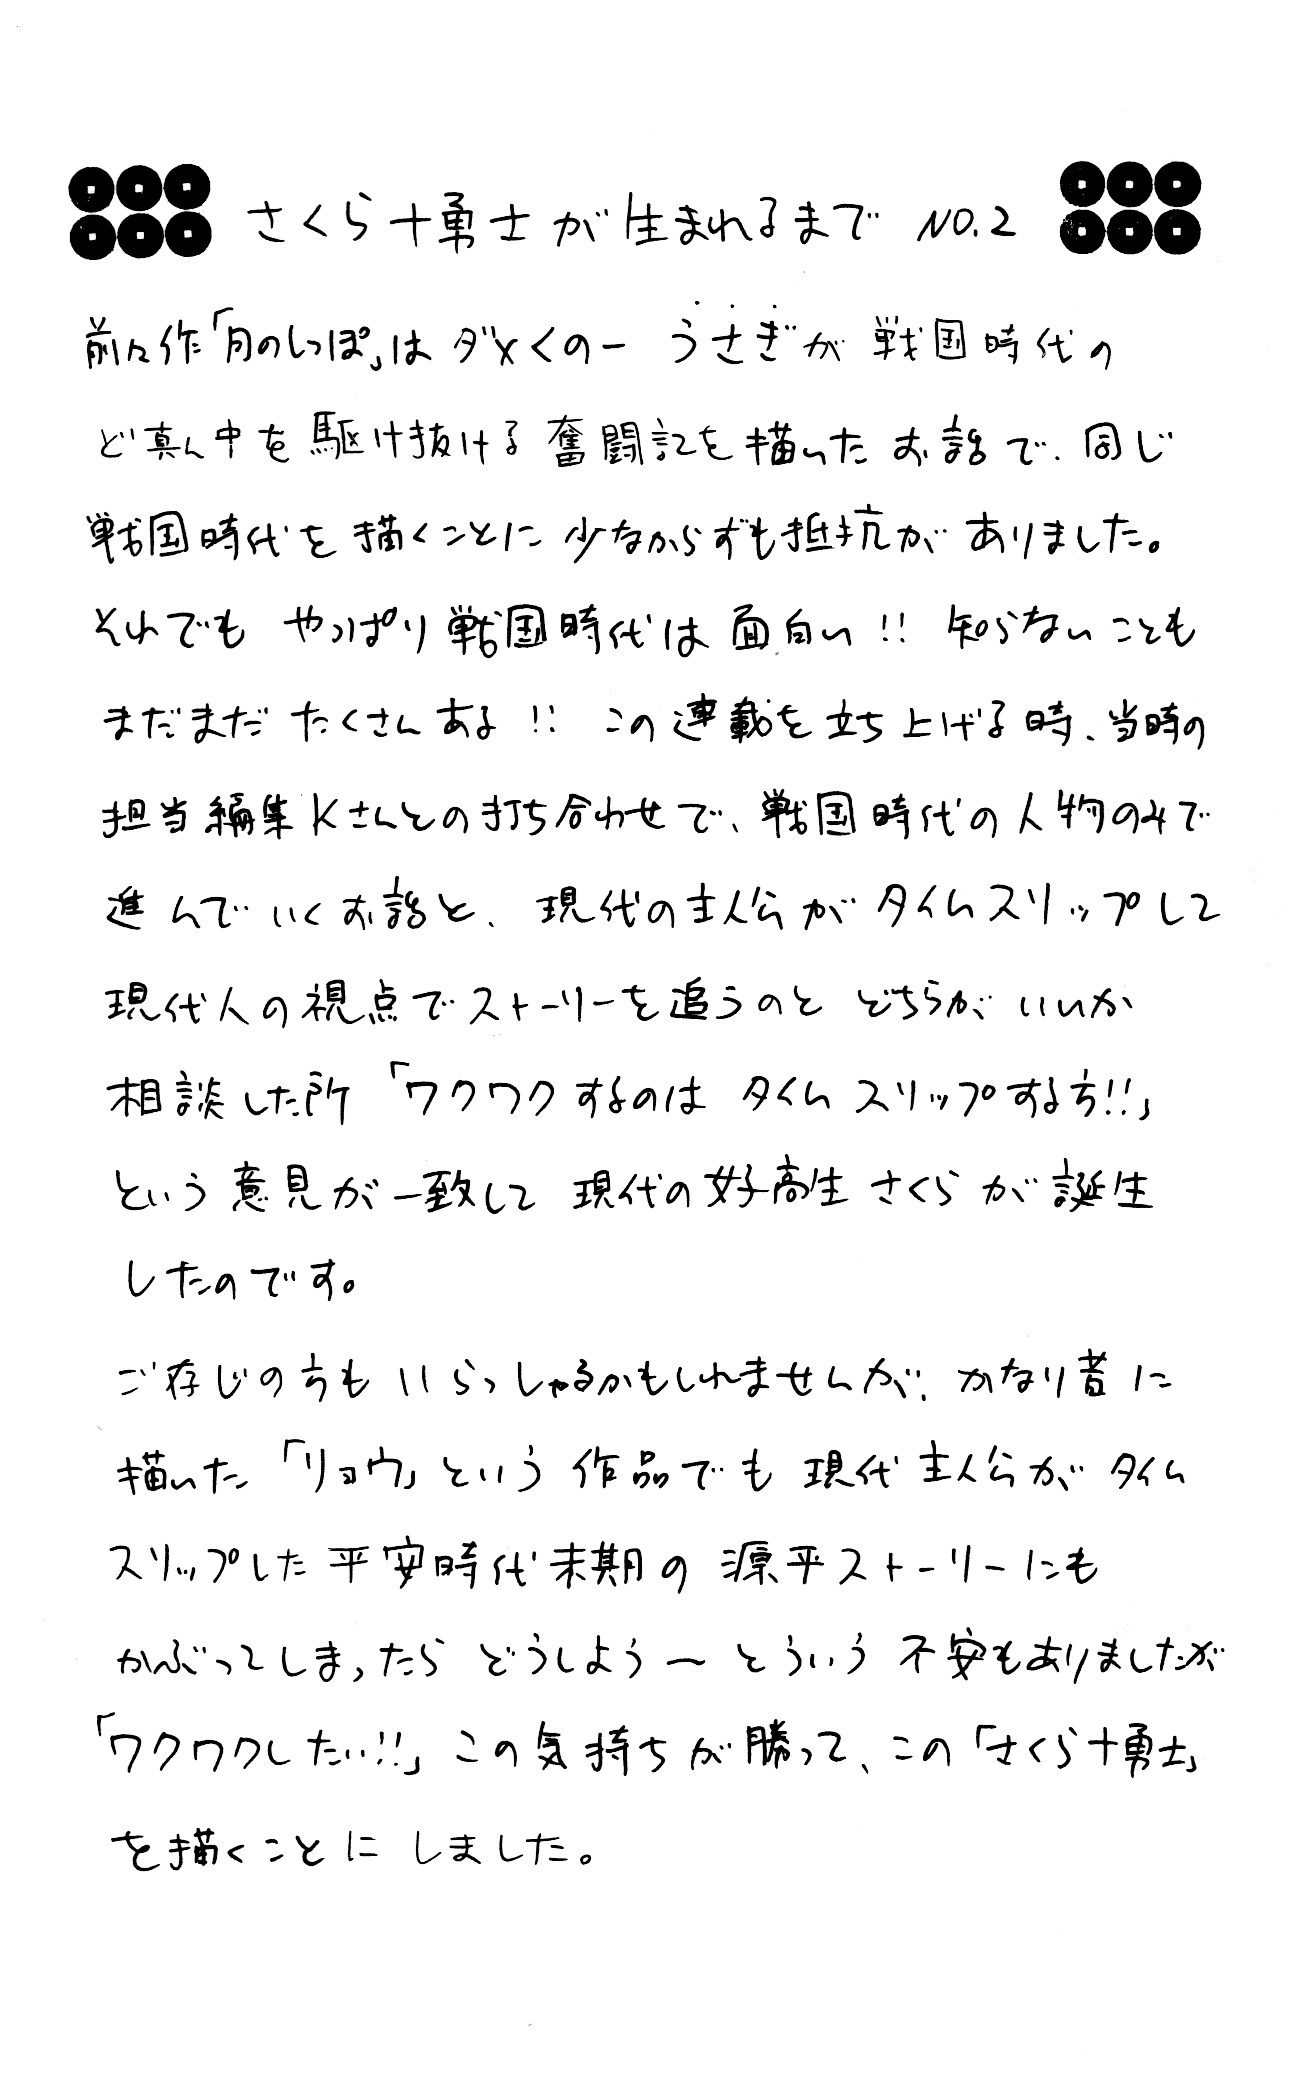 さくら十勇士が生まれるまで NO.2
前々作「月のしっぽ」はダメくのー うさぎが 戦国時代の
ど真ん中を駆け抜ける奮闘記を描いたお話で、同じ
戦国時代を描くことに少なからずも抵抗がありました。
それでも やっぱり戦国時代は面白い!! 知らないことも
まだまだ たくさんある!! この連載を立ち上げる時、当時の
担当編集Kさんとの打ち合わせで、戦国時代の人物のみで
進んでいくお話と、現代の主人公がタイムスリップして
現代人の視点でストーリーを追うのと どちらが いいか
相談した所「ワクワクするのは タイムスリップする方!!」
という意見が一致して 現代の女子高生 さくらが誕生
したのです。
ご存じの方も いらっしゃるかもしれませんが、かなり昔に
描いた「リョウ」という作品でも 現代主人公がタイム
スリップした平安時代末期の 源平ストーリーにも
かぶってしまったら どうしよう〜 とういう 不安もありましたが
「ワクワクしたい!!」この気持ちが勝って、この「さくら十勇士」
を描くことに しました。